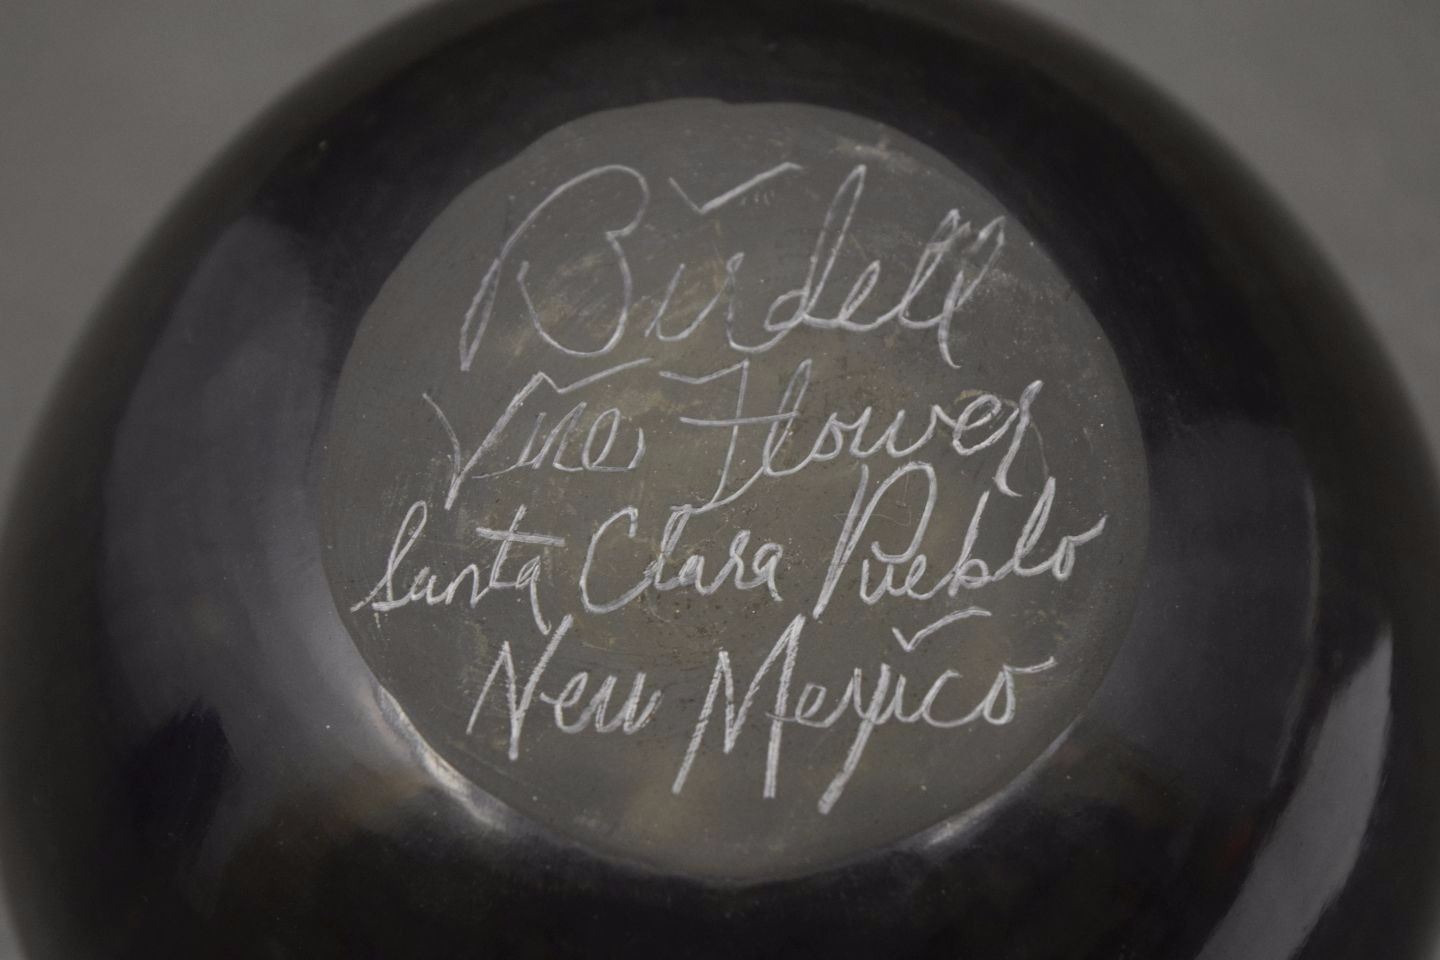 Birdell
Vine Flower
Santa Clara Pueblo
New Mexico